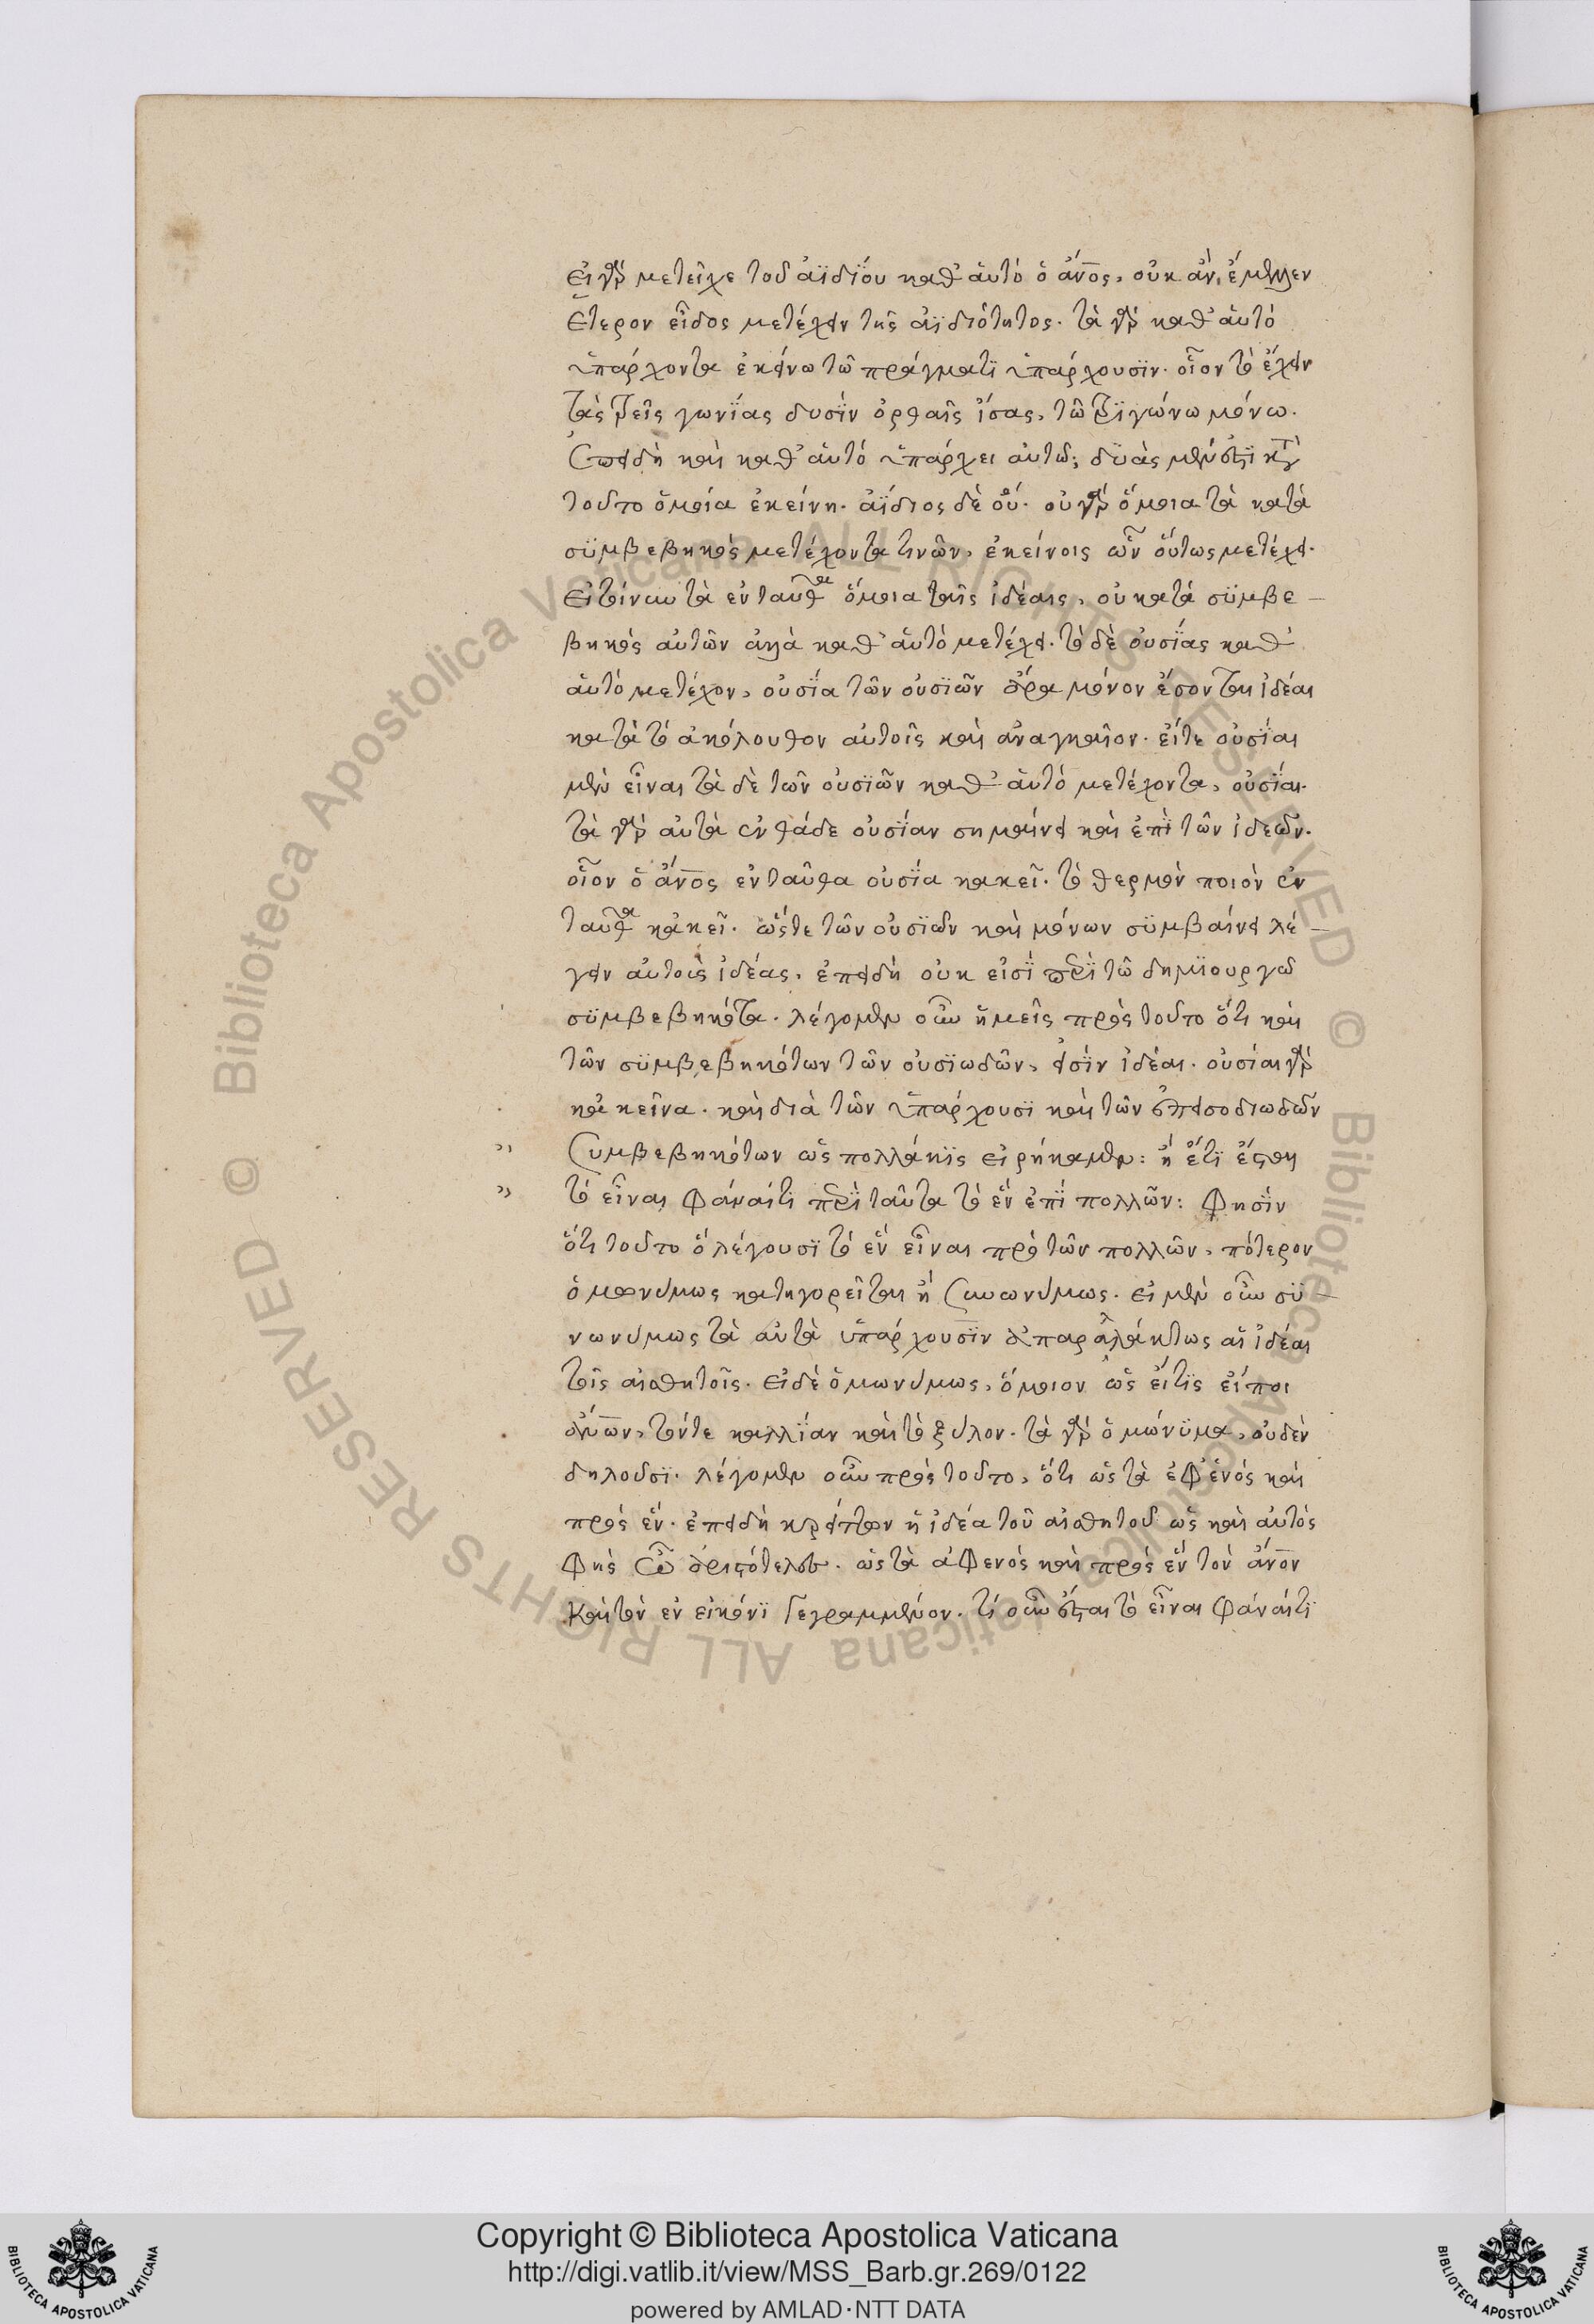 εἰ γὰρ μετεῖχε τοῦ ἀϊδΐου καθ' αὑτὸ ὁ ἄν̅ο̅ς, οὐκ ἂν, ἔμελλεν
ἕτερον εἶδος μετέχειν τῆς ἀϊδιότητος. τὰ γὰρ καθ' αὑτὸ
ὑπάρχοντα ἐκείνω τῶ πράγματϊ ὑπάρχουσϊν. οἷον τὸ ἔχειν
τὰς τρεῖς γωνΐας δυσῒν ὀρθαῖς ἴσας, τῶ τρϊγώνω μόνω.
ἐπειδὴ καὶ καθ' αὑτὸ ὑπάρχει αὐτῶ; δϋὰς μέν ἐστϊ κατὰ
τοῦτο ὁμοία ἐκείνη. ἀΐδιος δὲ οὔ. οὐ γὰρ ὅμοια τὰ κατὰ
σϋμβεβηκὸς μετέχοντα τινῶν, ἐκείνοις ὧν οὕτως μετέχει.
εἰ τοίνυν τὰ ἐνταῦθα ὅμοια ταῖς ἰδέαις, οὐ κατὰ σϋμβε–
βηκὸς αὐτῶν ἀλλὰ καθ' αὑτὸ μετέχει. τὸ δὲ οὐσΐας καθ'
αὑτὸ μετέχον, οὐσΐα τῶν οὐσϊῶν ἄρα μόνον ἔσονται ἰδέαι
κατὰ τὸ ἀκόλουθον αὐτοῖς καὶ ἀναγκαῖον. εἴτε οὐσΐαι
μὲν εἶναι τὰ δὲ τῶν οὐσϊῶν καθ' αὑτὸ μετέχοντα, οὐσΐαι.
τὰ γὰρ αὐτὰ ἐνθάδε οὐσίαν σημαίνει καὶ ἐπῒ τῶν ἰδεῶν.
οἷον ὁ ἄν̅ο̅ς ἐνταῦθα οὐσΐα κακεῖ. τὸ θερμὸν ποιὸν ἐν
ταῦθα κἀκεῖ. ὥστε τῶν οὐσϊῶν καὶ μόνων σϋμβαίνει λέ–
γειν αὐτοὺς ἰδέας, ἐπειδὴ οὐκ εἰσῒ παρὰ τῶ δημϊουργῶ
σϋμβεβηκότα. λέγομεν οὖν ἡμεῖς πρὸς τοῦτο ὅτι καὶ
τῶν σϋμβεβηκότων τῶν οὐσϊωδῶν, εἰσῒν ἰδέαι. οὐσίαι γὰρ
κἀκεῖνα. καὶ διὰ τῶν ὑπάρχουσϊ καὶ τῶν ἐπεισοδιωδῶν
" συμβεβηκότων ὡς πολλάκϊς εἰρήκαμεν: ἢ ἔτϊ ἔσται
" τὸ εἶναι φάναι τι παρὰ ταῦτα τὸ ἓν ἐπῒ πολλῶν: φησῒν
ὅτι τοῦτο ὃ λέγουσϊ τὸ ἓν εἶναι πρὸ τῶν πολλῶν, πότερον
ὁμωνύμως κατηγορεῖται ἢ συνωνύμως. εἰ μὲν οὖν σϋ–
νωνύμως τὰ αὐτὰ ὑπάρχουσϊν ἀπαραλλάκτως αἱ ἰδέαι
τοῖς αἰσθητοῖς. εἰ δὲ ὁμωνύμως, ὅμοιον ὡς εἴ τϊς εἴποι
ἄν̅ον, τόν τε καλλΐαν καὶ τὸ ξύλον. τὰ γὰρ ὁμώνϋμα, οὐδὲν
δηλοῦσϊ. λέγομεν οὖν πρὸς τοῦτο, ὅτι ὡς τὰ ἐφ' ἑνὸς καὶ
πρὸς ἕν. ἐπειδὴ κρεῖττον ἡ ἰδέα τοῦ αἰσθητοῦ ὡς καὶ αὐτὸς
φὴς ὦ ἀριστότελες. ὡς τὰ ἀφενὸς καὶ πρὸς ἓν τὸν ἄν̅ον
καὶ τὸν ἐν εἰκόνϊ γεγραμμένον. τί οὖν ἔσται τὸ εἶναι φάναι τϊ
Copyright © Biblioteca Apostolica Vaticana
http://digi.vatlib.it/view/MSS_Barb.gr.269/0122
powered by AMLAD·NTT DATA